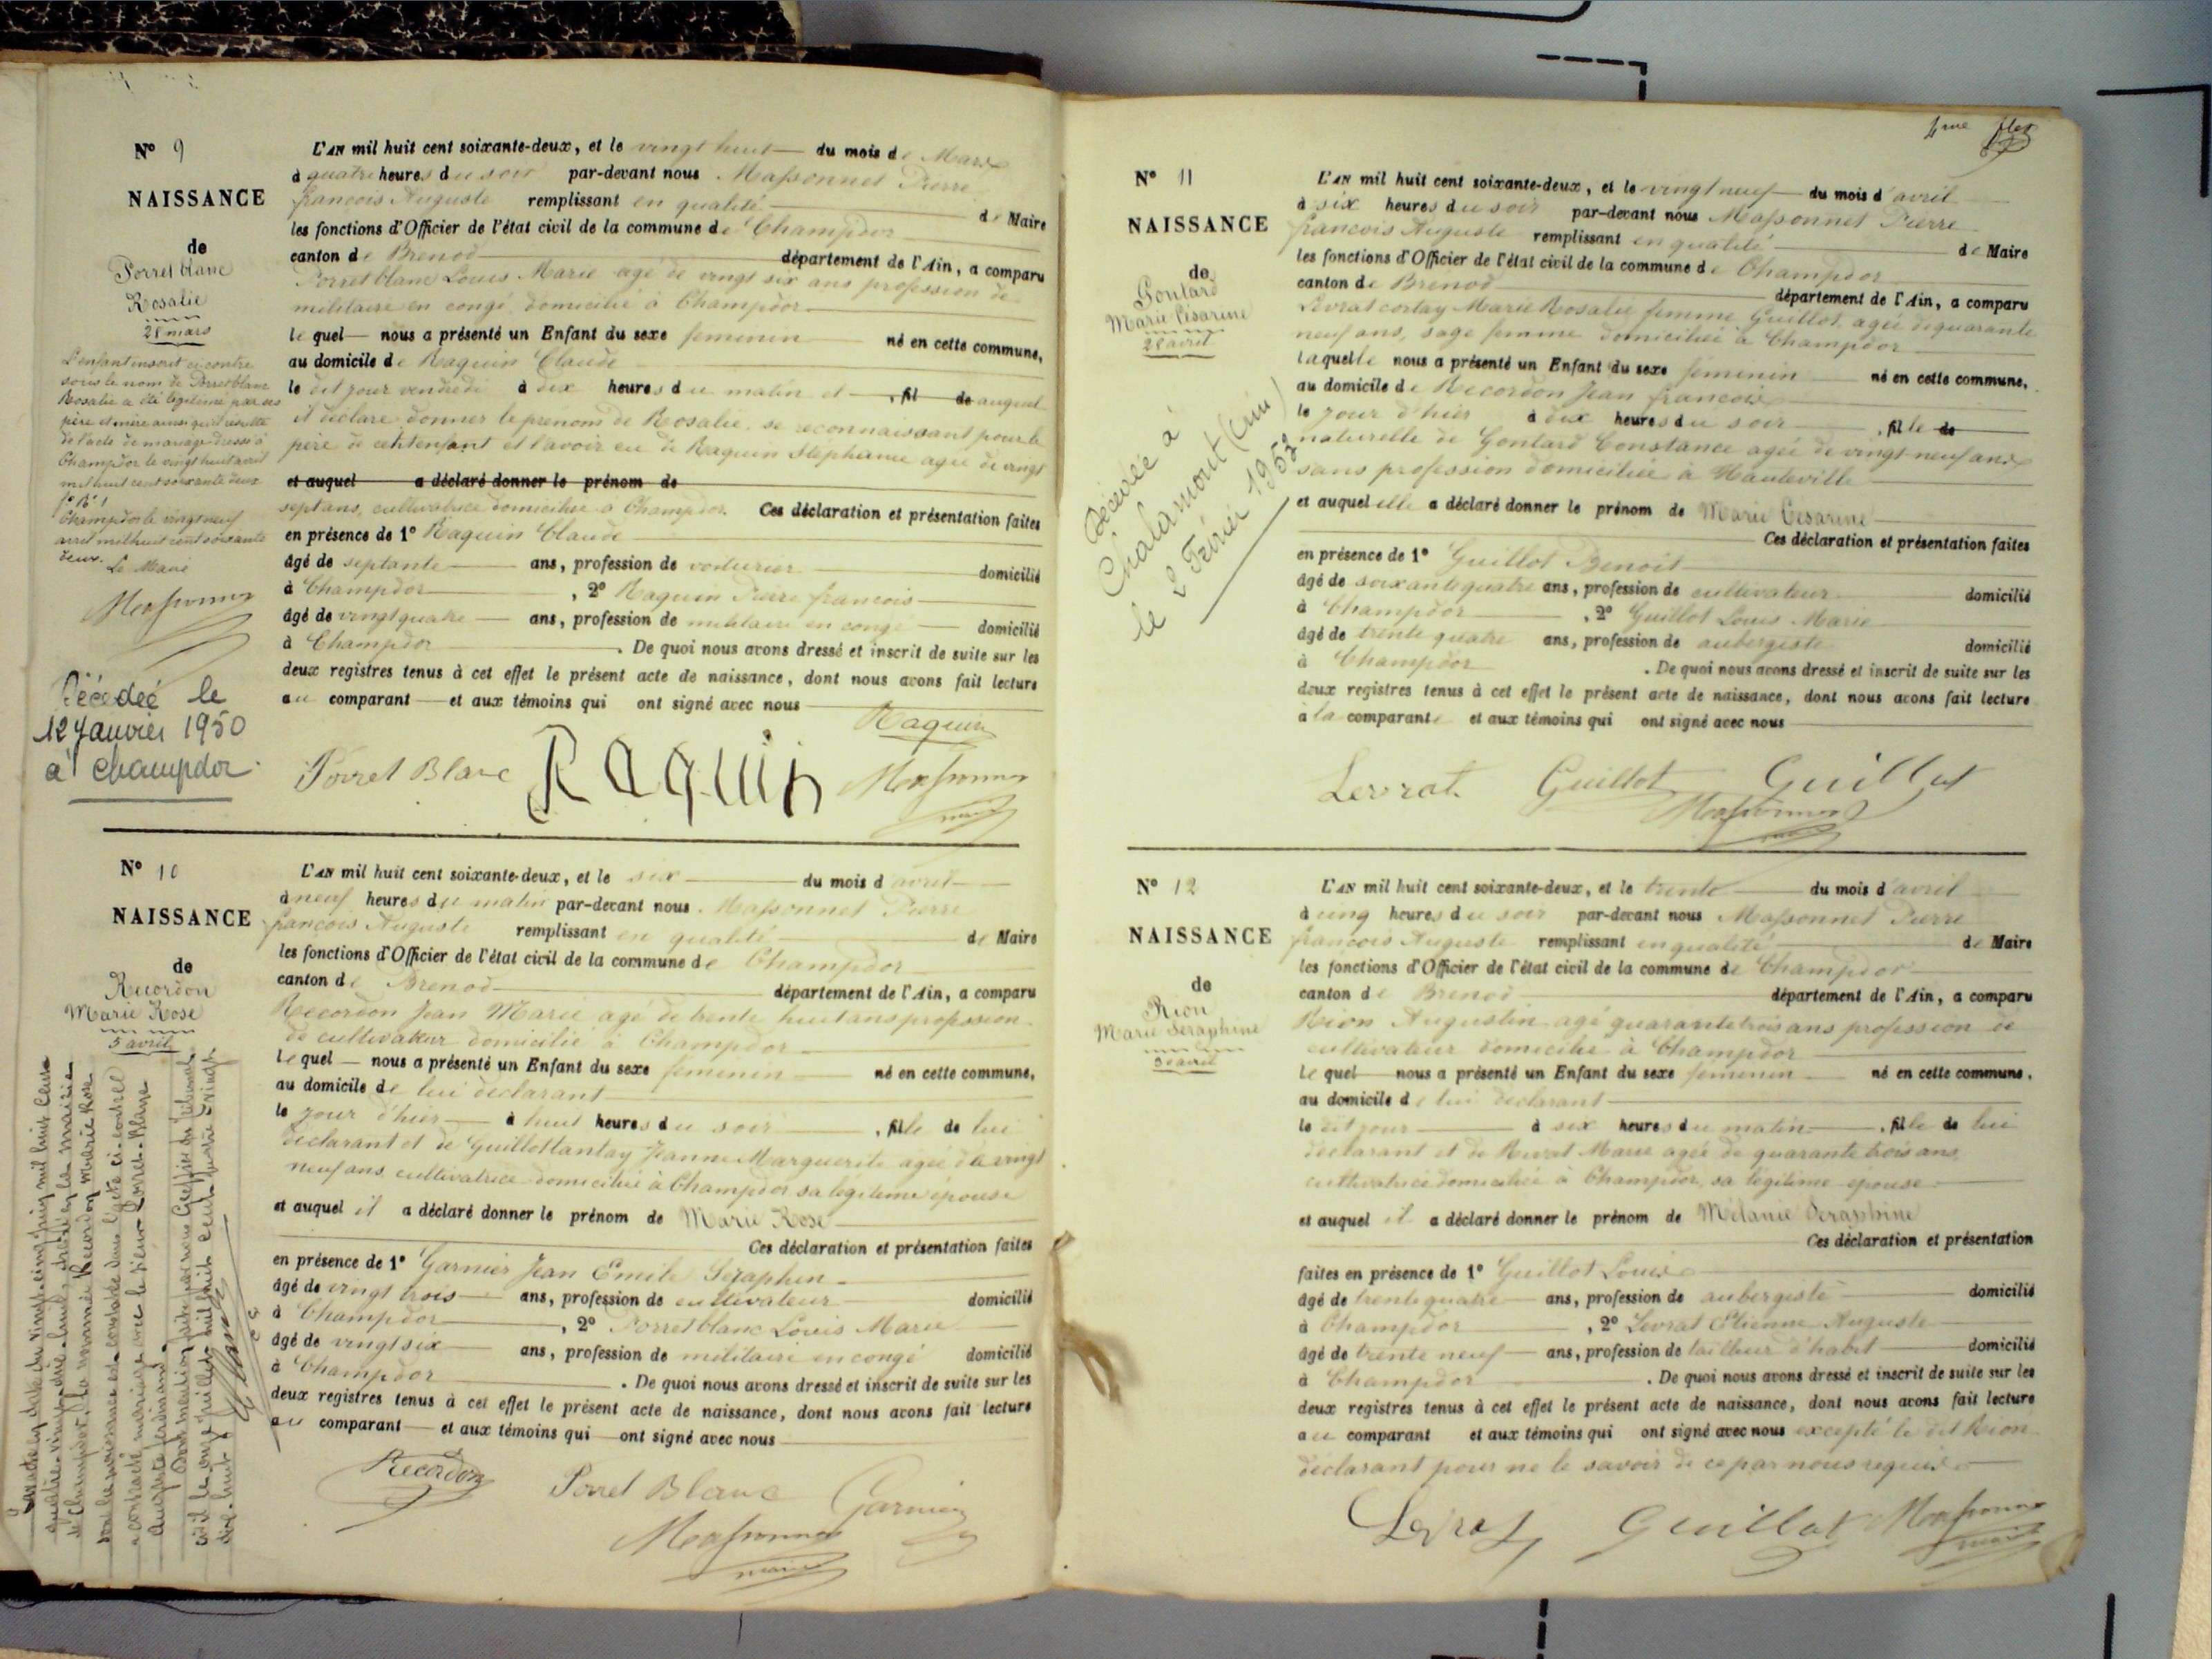 Nº 9
NAISSANCE
de
Porret blanc
Rosalie
28 mars
L'enfant inscrit ci-contre
sous le nom de Porret blanc
Rosalie a été légitimé par ses
père et mère ainsi qu'il résulte
de l'acte de mariage dressé à
Champdor le vingt huit avril
mil huit cent soixante deux
Champdor le vingt neuf
avril mil huit cent soixante
deux.
Le Maire
Massonnet
Décédée le
12 Janvier 1950
à Champdor.
L'AN mil huit cent soixante-deux, et le vingt huit du mois de Mars
à quatre heures du soir par-devant nous Massonnet Pierre
francois Auguste remplissant en qualité de Maire
les fonctions d'Officier de l'état civil de la commune de Champdor
canton de Brenod département de l'Ain, a comparu
Porret blanc Louis Marie agé de vingt six ans profession de
militaire en congé domicilié à Champdor
le quel nous a présenté un Enfant du sexe feminin né en cette commune,
au domicile de Raquin Claude
le dit jour vendredi à dix heures du matin et , fil de auquel
il déclare donner le prénom de Rosalie. se reconnaissant pour le
père de cet enfant et l'avoir eu de Raquin Stephanie agée de vingt
et auquel a déclaré donner le prénom de
sept ans, cultivatrice domiciliée à Champdor. Ces déclaration et présentation faites
en présence de 1º Raquin Claude
âgé de septante ans, profession de voiturier domicilié
à Champdor , 2º Raquin Pierre francois
âgé de vingt quatre ans, profession de militaire en congé domicilié
à Champdor . De quoi nous avons dressé et inscrit de suite sur les
deux registres tenus à cet effet le présent acte de naissance, dont nous avons fait lecture
au comparant et aux témoins qui ont signé avec nous
Raquin
Porret Blanc Raquin Massonnet
maire
Nº 10
NAISSANCE
de
Recordon
Marie Rose
5 avril
L'AN mil huit cent soixante-deux, et le six du mois d avril
à neuf heures du matin par-devant nous Massonnet Pierre
francois Auguste remplissant en qualité de Maire
les fonctions d'Officier de l'état civil de la commune de Champdor
canton de Brenod département de l'Ain, a comparu
Recordon Jean Marie agé de trente huit ans profession
de cultivateur domicilié à Champdor
le quel nous a présenté un Enfant du sexe féminin né en cette commune,
au domicile de lui déclarant
le jour d'hier à huit heures du soir , fille de lui
déclarant et de Guillot tantay Jeanne Marguerite agée de vingt
neuf ans cultivatrice domiciliée à Champdor sa légitime épouse
et auquel il a déclaré donner le prénom de Marie Rose
Ces déclaration et présentation faites
en présence de 1º Garnier Jean Emile Séraphin
âgé de vingt trois ans, profession de cultivateur domicilié
à Champdor , 2º Porret blanc Louis Marie
âgé de vingt six ans, profession de militaire en congé domicilié
à Champdor . De quoi nous avons dressé et inscrit de suite sur les
deux registres tenus à cet effet le présent acte de naissance, dont nous avons fait lecture
au comparant et aux témoins qui ont signé avec nous
Recordon Porret Blanc Garnier
Massonnet
maire
Nº 11
NAISSANCE
de
Gontard
Marie Césarine
28 avril
Décédée à
Chalamont (Ain)
le 2 Février 1952
L'AN mil huit cent soixante-deux, et le vingt neuf du mois d'avril
à six heures du soir par-devant nous Massonnet Pierre
francois Auguste remplissant en qualité de Maire
les fonctions d'Officier de l'état civil de la commune de Champdor
canton de Brenod département de l'Ain, a comparu
Levrat cortay Marie Rosalie femme Guillot, agée de quarante
neuf ans, sage femme domiciliée à Champdor
laquelle nous a présenté un Enfant du sexe feminin né en cette commune,
au domicile de Recordon Jean francois
le jour d'hier à dix heures du soir , fille de
naturelle de Gontard Constance agée de vingt neuf ans
sans profession domiciliée à Hauteville
et auquel elle a déclaré donner le prénom de Marie Césarine
Ces déclaration et présentation faites
en présence de 1º Guillot Benoit
âgé de soixante quatre ans, profession de cultivateur domicilié
à Champdor , 2º Guillot Louis Marie
âgé de trente quatre ans, profession de aubergiste domicilié
à Champdor . De quoi nous avons dressé et inscrit de suite sur les
deux registres tenus à cet effet le présent acte de naissance, dont nous avons fait lecture
à la comparante et aux témoins qui ont signé avec nous
Levrat Guillot Guillot
Massonnet
Nº 12
NAISSANCE
de
Rion
Marie Seraphine
30 avril
L'AN mil huit cent soixante-deux, et le trente du mois d'avril
à cinq heures du soir par-devant nous Massonnet Pierre
francois Auguste remplissant en qualité de Maire
les fonctions d'Officier de l'état civil de la commune de Champdor
canton de Brenod département de l'Ain, a comparu
Rion Augustin agé quarante trois ans profession de
cultivateur domicilié à Champdor
le quel nous a présenté un Enfant du sexe feminin né en cette commune,
au domicile de lui déclarant
le dit jour à six heures du matin , fille de lui
déclarant et de Rivat Marie agée de quarante trois ans
cultivatrice domiciliée à Champdor, sa légitime épouse
et auquel il a déclaré donner le prénom de Mélanie Seraphine
Ces déclaration et présentation
faites en présence de 1º Guillot Louis
âgé de trente quatre ans, profession de aubergiste domicilié
à Champdor , 2º Levrat Etienne Auguste
âgé de trente neuf ans, profession de tailleur d'habit domicilié
à Champdor . De quoi nous avons dressé et inscrit de suite sur les
deux registres tenus à cet effet le présent acte de naissance, dont nous avons fait lecture
au comparant et aux témoins qui ont signé avec nous excepté le dit Rion
déclarant pour ne le savoir de ce par nous requis
Levrat Guillot Massonnet
maire